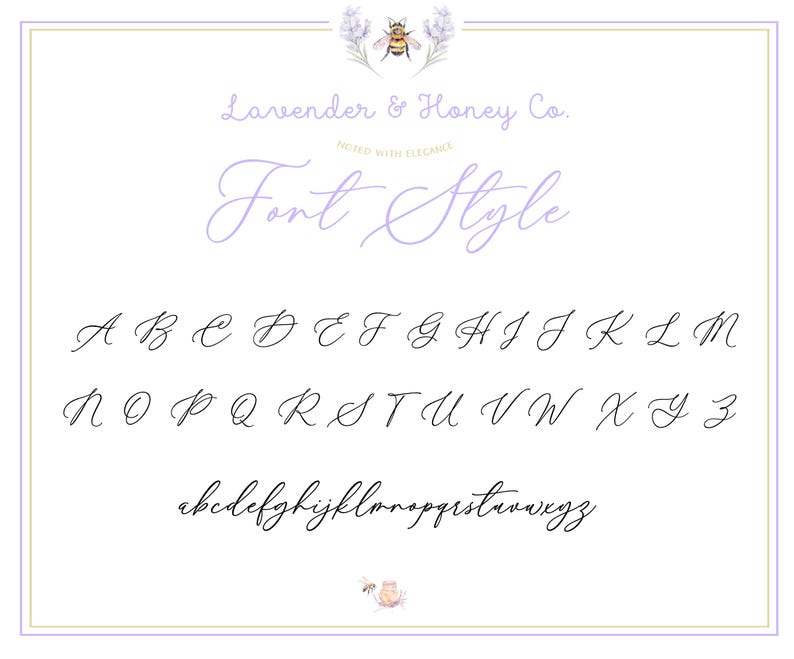 Lavender & Honey Co.
NOTED WITH ELEGANCE
Font Style
A B C D E F G H I J K L M
N O P Q R S T U V W X Y Z
abcdefghijklmnopqrstuvwxyz